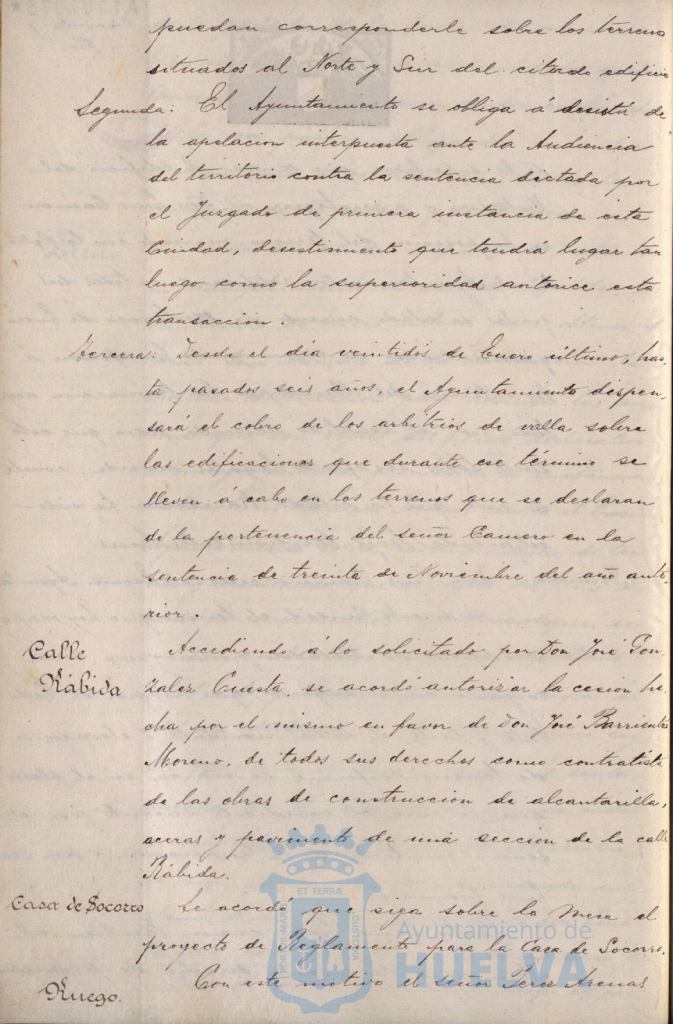 puedan corresponderle sobre los terrenos
situados al Norte y Sur del citado edificio
Segunda: El Ayuntamiento se obliga á desistir de
la apelacion interpuesta ante la Audiencia
del territorio contra la sentencia dictada por
el Juzgado de primera instancia de esta
Ciudad, desestimiento que tendrá lugar tan
luego como la superioridad autorice esta
transaccion.
Tercera: Desde el día veintidós de Enero último, has-
ta pasados seis años, el Ayuntamiento dispen-
sará el cobro de los arbitrios de valla sobre
las edificaciones que durante ese término se
lleven á cabo en los terrenos que se declaran
de la pertenencia del señor Camero en la
sentencia de treinta de Noviembre del año ante-
rior.
Calle
Rábida
Accediendo á lo solicitado por Don José Gon-
zalez Cuesta, se acordó autorizar la cesion he-
cha por el mismo en favor de Don José Barrientos
Moreno, de todos sus derechos como contratista
de las obras de construccion de alcantarilla,
aceras y pavimento de una seccion de la calle
Rábida.
Casa de Socorro
Se acordó que siga sobre la Mesa el
proyecto de Reglamento para la Casa de Socorro.
Ruego.
Con este motivo el señor Perez Arenas
ET TERRÆ
PORTUS MARIS
CUSTODIA
Ayuntamiento de
HUELVA